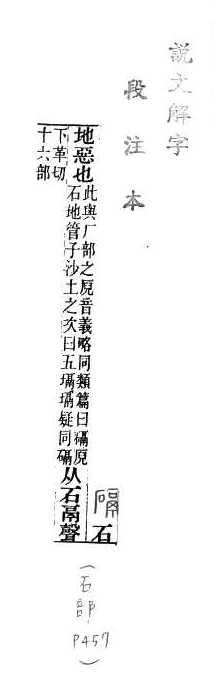 說文解字
段注本
石
䃒
地惡也
此與厂部之㕅音義略同類篇曰䃒㕅
石地管子沙土之次曰五塥塥疑同䃒
从石鬲聲
下革切
十六部
(石部 P457)